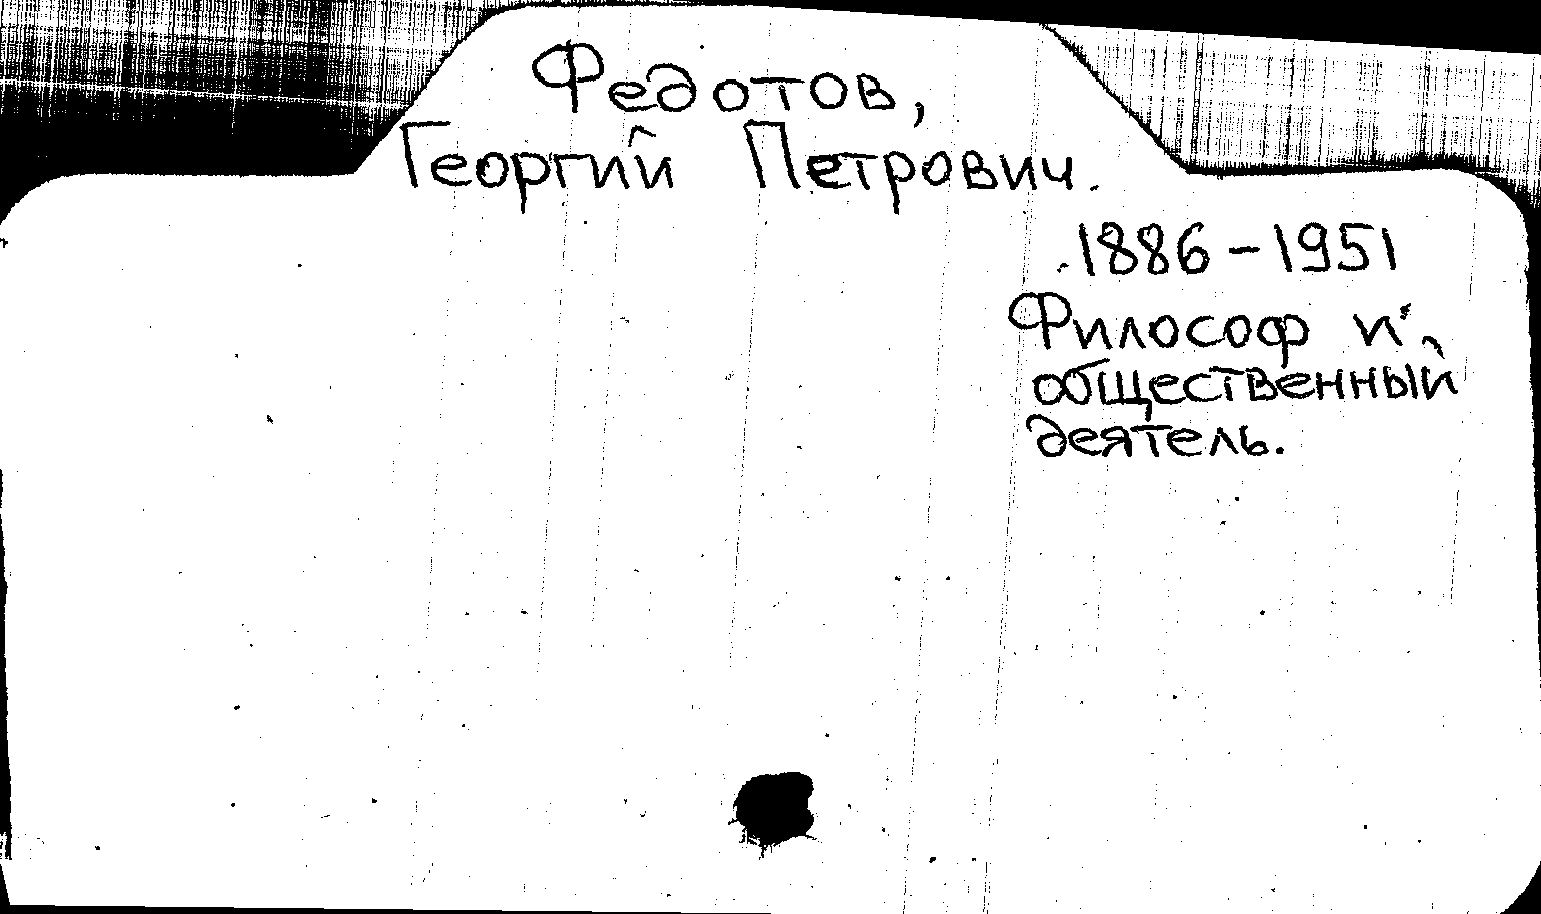 Федотов,
Георгий Петрович.
1886-1951
Философ и
общественный
деятель.